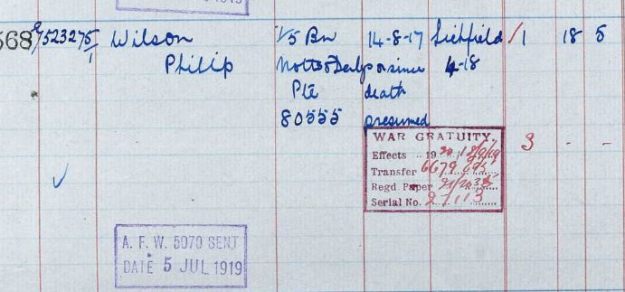 568 9/523275/1 Wilson 1/5 Bn 14-8-17 Lichfield 1 18 5
Philip Notts & Derby or since 4-18
Pte death
80555 presumed
WAR GRATUITY. 3 - -
Effects .. 19
Transfer 6679
Regd. Paper
Serial No. 27113
A. F. W. 5070 SENT
DATE 5 JUL 1919